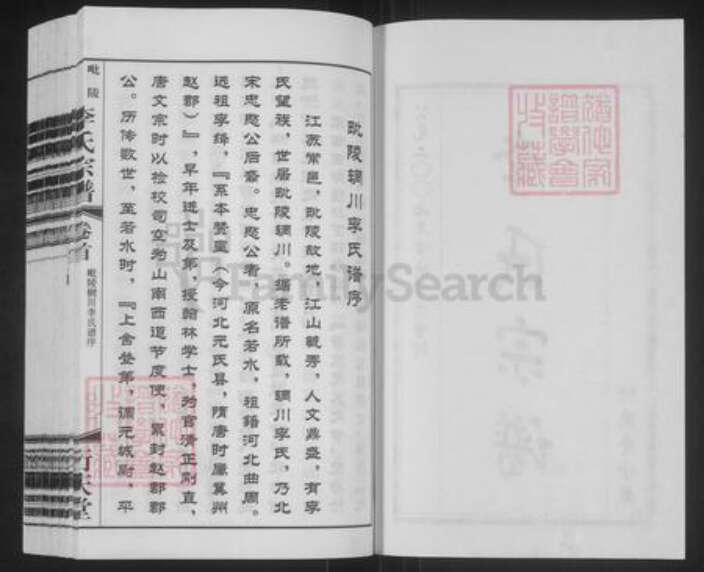 毗陵辋川李氏谱序
江苏常邑，毗陵故地，江山毓秀，人文鼎盛，有李
氏望族，世居毗陵辋川。据老谱所载，辋川李氏，乃北
宋忠愍公后裔。忠愍公者，原名若水，祖籍河北曲周。
远祖李绛，『系本赞皇（今河北元氏县，隋唐时属冀州
赵郡）』，早年进士及第，授翰林学士，为官清正刚直，
唐文宗时以检校司空为山南西道节度使，累封赵郡郡
公。所传数世，至若水时，『上舍登第，调元城尉，平
毗陵
李氏宗谱
卷首
毗陵辋川李氏谱序
FamilySearch
宗谱